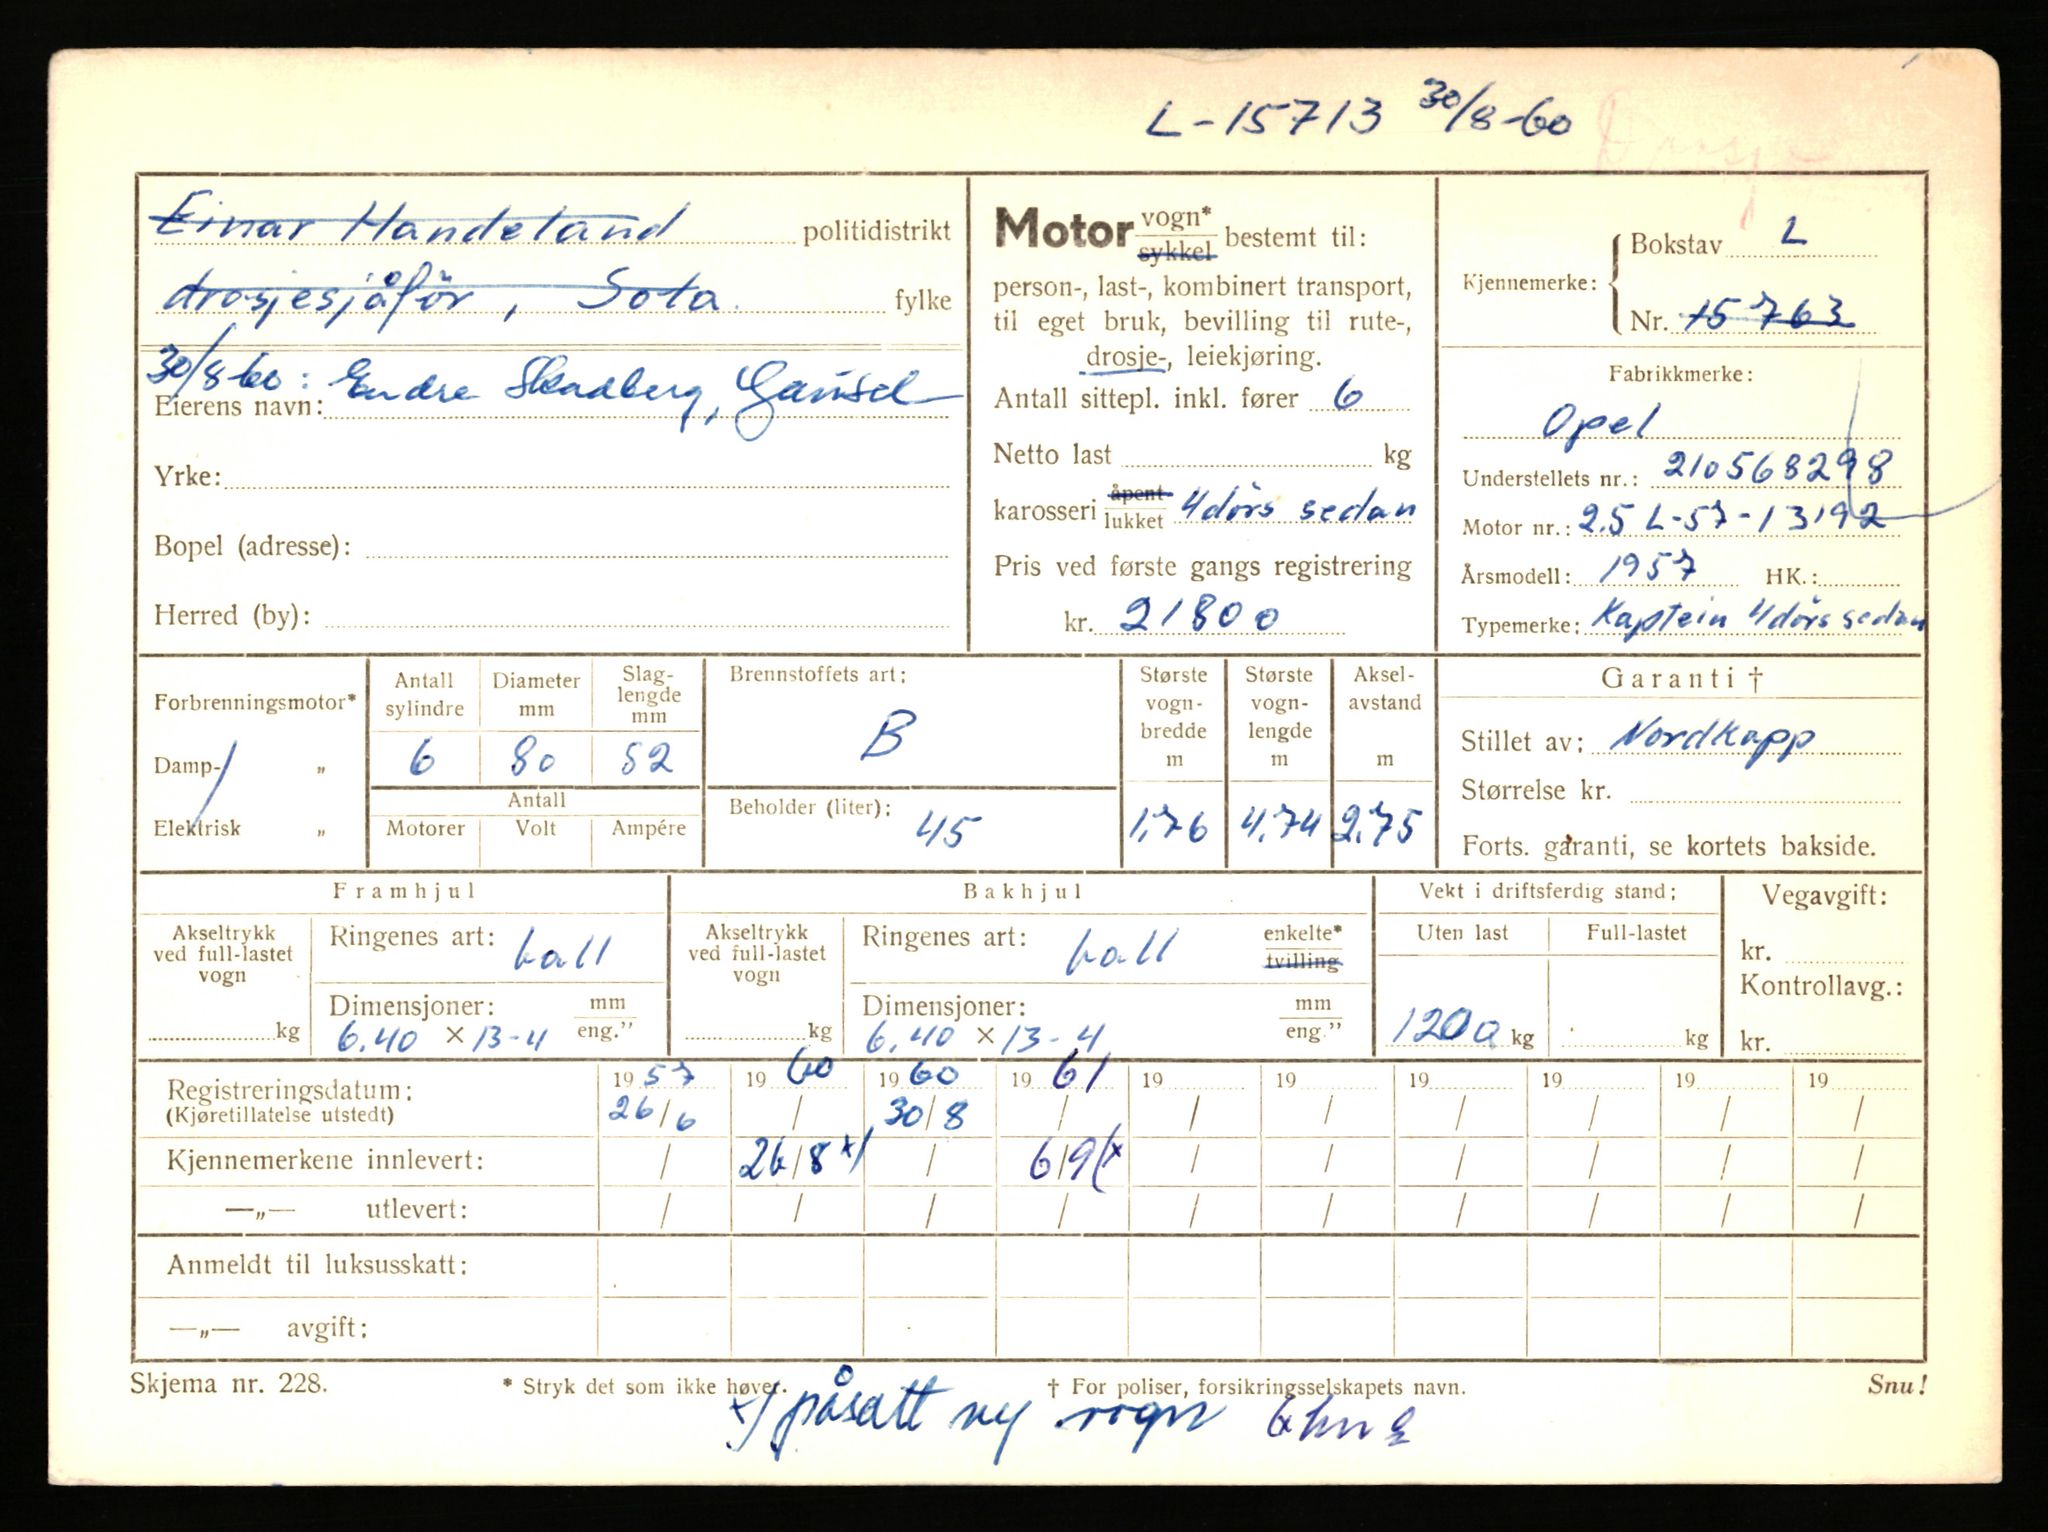 L-15713 30/8-60
Einar Handeland politidistrikt
drosjesjåför, Sola. fylke
30/8-60: Endre Skadberg, Gausel
Eierens navn:
Yrke:
Bopel (adresse):
Herred (by):
Motor vogn* sykkel bestemt til:
person-, last-, kombinert transport,
til eget bruk, bevilling til rute-,
drosje-, leiekjøring.
Antall sittepl. inkl. fører 6
Netto last kg
karosseri åpent lukket 4dörs sedan
Pris ved første gangs registrering
kr. 21800
Kjennemerke: Bokstav L
Nr. 15763
Fabrikkmerke:
Opel
Understellets nr.: 210568298
Motor nr.: 2.5 L-57-13192
Årsmodell: 1957 HK.:
Typemerke: Kaptein 4dörs sedan
Forbrenningsmotor*
Damp- „
Elektrisk „
Antall sylindre Diameter mm Slag-lengde mm
6 80 82
Antall
Motorer Volt Ampére
Brennstoffets art:
B
Beholder (liter): 45
Største vogn-bredde m Største vogn-lengde m Aksel-avstand m
1.76 4.74 2.75
Garanti †
Stillet av: Nordkapp
Størrelse kr.
Forts. garanti, se kortets bakside.
Framhjul
Akseltrykk ved full-lastet vogn
kg
Ringenes art: ball
Dimensjoner: mm eng.”
6.40 × 13-4
Bakhjul
Akseltrykk ved full-lastet vogn
kg
Ringenes art: ball enkelte* tvilling
Dimensjoner: mm eng.”
6.40 × 13-4
Vekt i driftsferdig stand:
Uten last Full-lastet
1200 kg kg
Vegavgift:
kr.
Kontrollavg.:
kr.
Registreringsdatum: 19 57 19 60 19 60 19 61 19 19 19 19 19 19
(Kjøretillatelse utstedt) 26/6 / 30/8 / / / / / / /
Kjennemerkene innlevert: / 26/8 x) / 6/9 (x / / / / / /
—„— utlevert: / / / / / / / / / /
Anmeldt til luksusskatt:
—„— avgift:
Skjema nr. 228. * Stryk det som ikke høver. † For poliser, forsikringsselskapets navn. Snu!
x) påsatt ny vogn